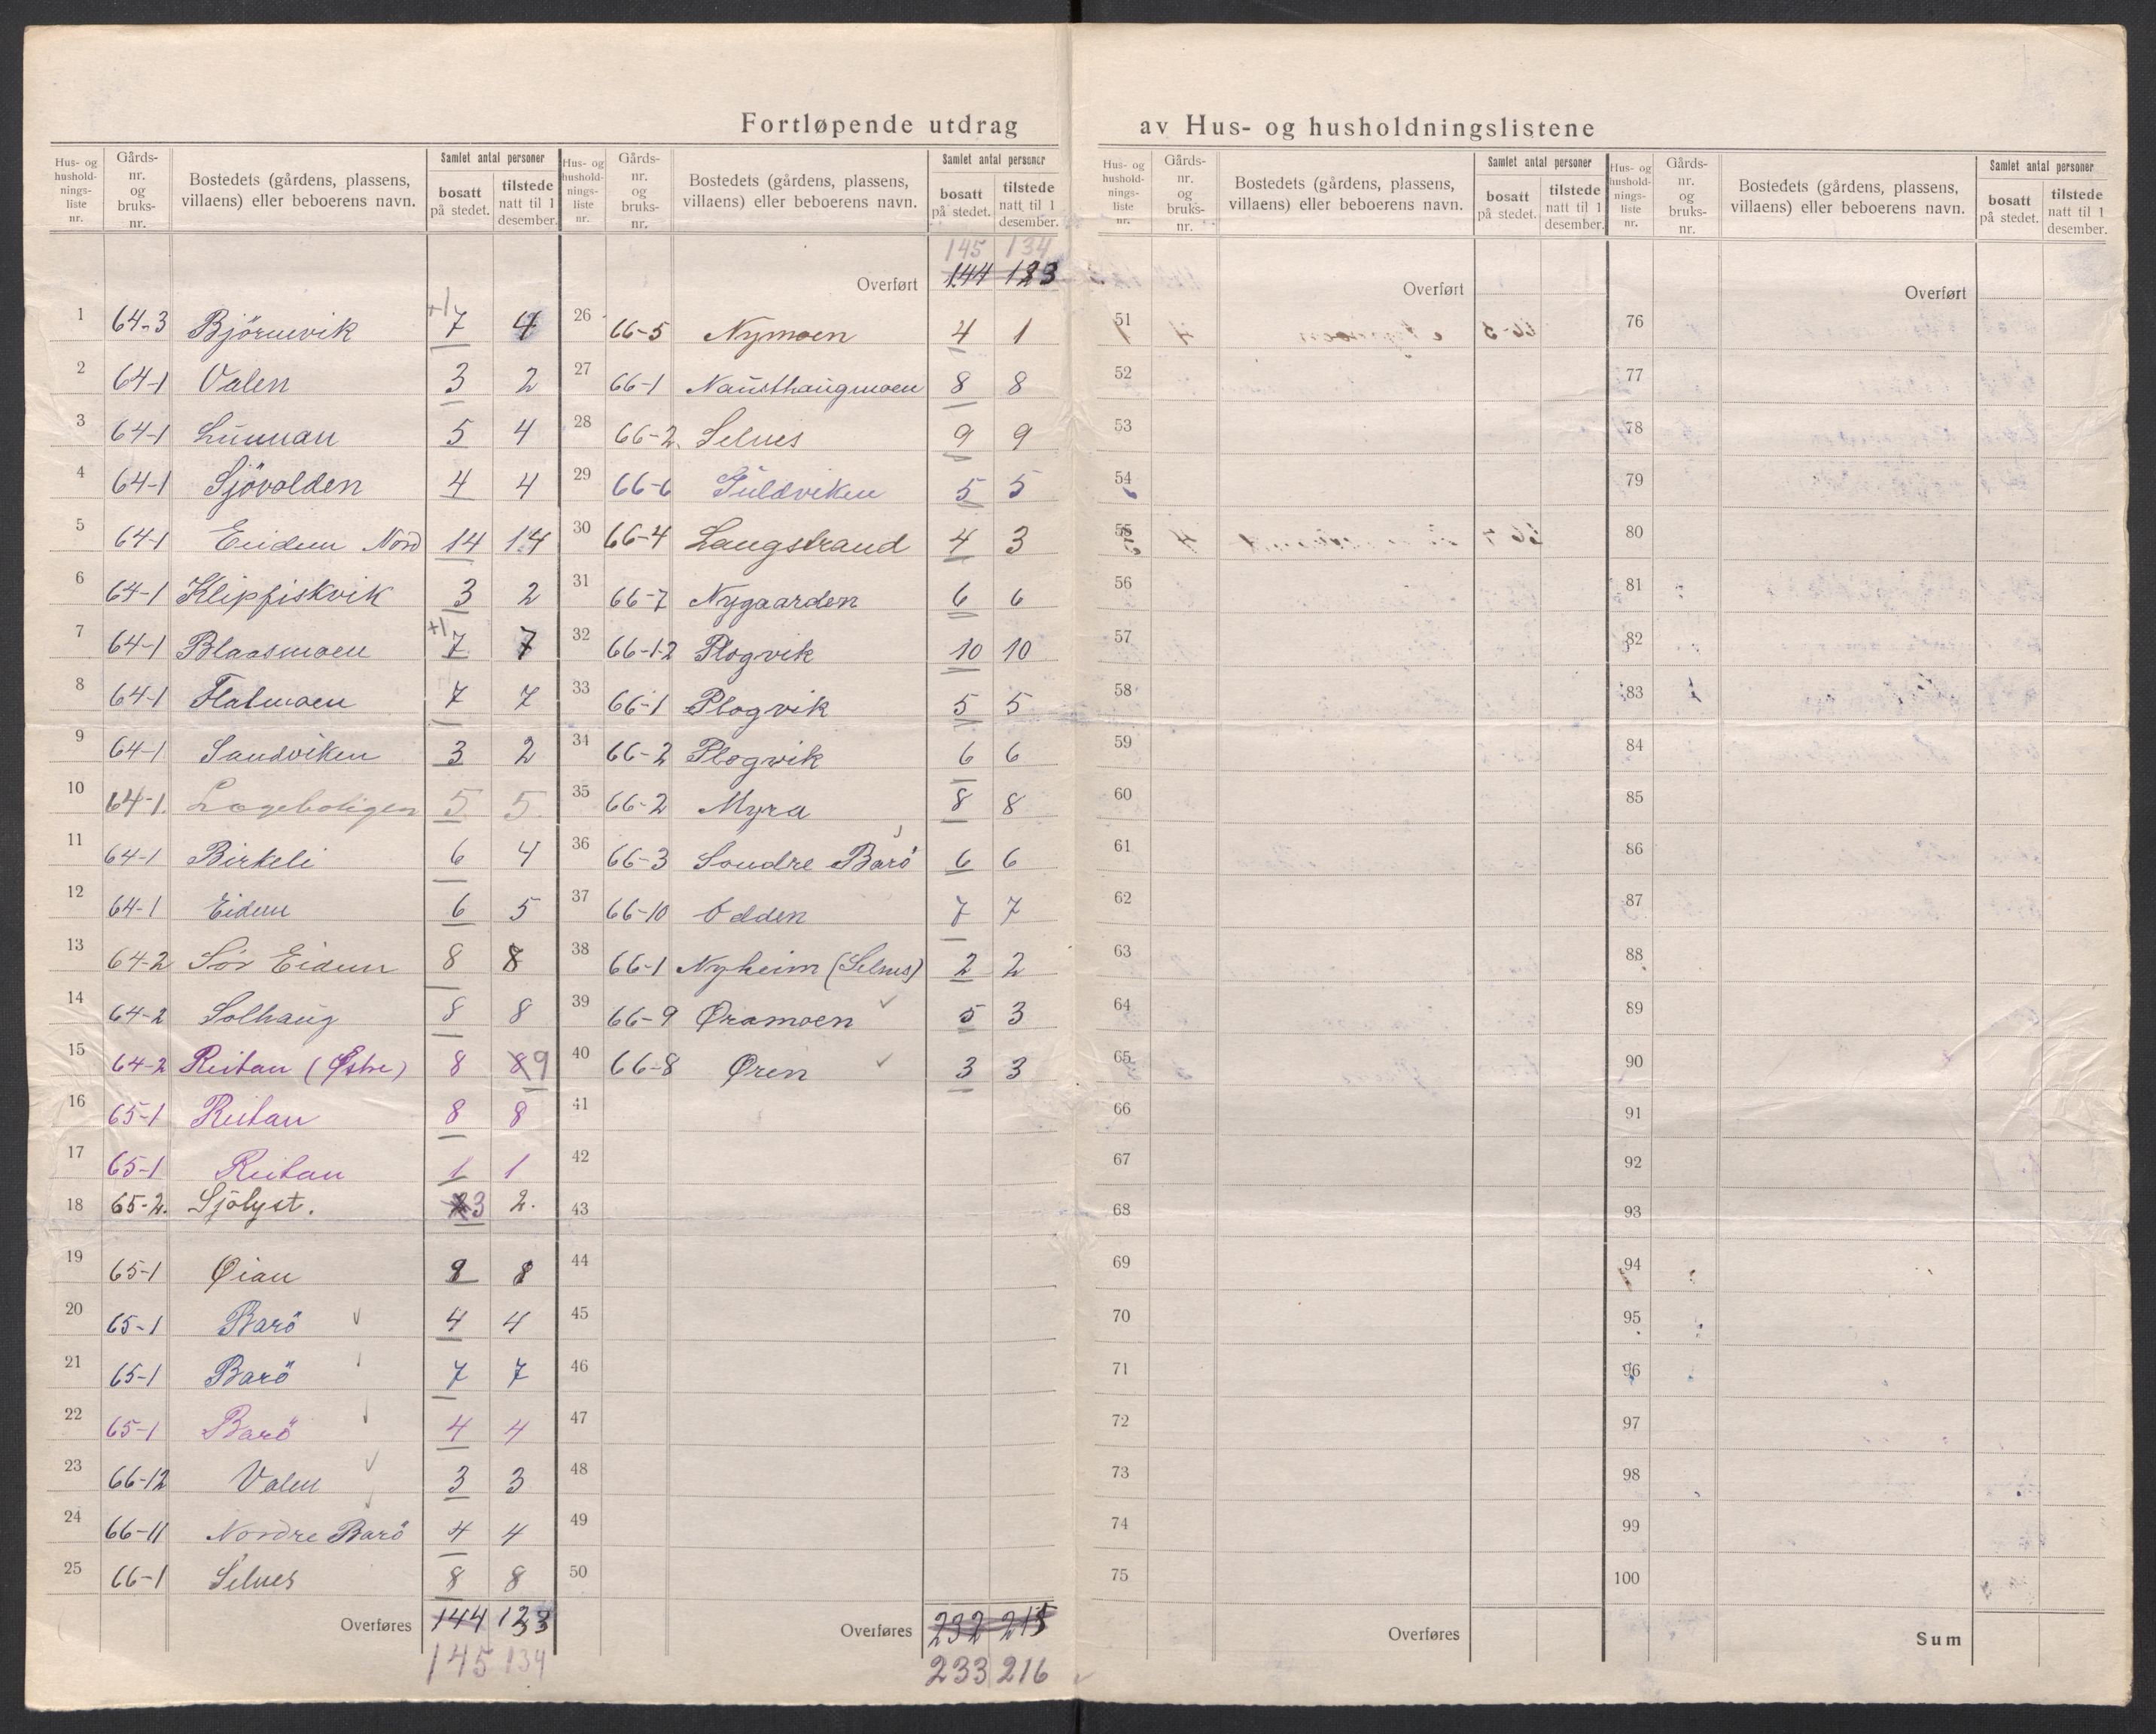 Fortløpende utdrag av Hus- og husholdningslistene
Hus- og hushold- nings- liste nr. | Gårds- nr. og bruks- nr. | Bostedets (gårdens, plassens, villaens) eller beboerens navn. | Samlet antal personer | bosatt på stedet. | tilstede natt til 1 desember.
1 64-3 Björnevik +1 7 4
2 64-1 Valen 3 2
3 64-1 Lunnan 5 4
4 64-1 Sjövolden 4 4
5 64-1 Eidem Nord 14 14
6 64-1 Klipfiskvik 3 2
7 64-1 Blaasmoen +1 7 7
8 64-1 Flatmoen 7 7
9 64-1 Sandviken 3 2
10 64-1. Lægeboligen 5 5.
11 64-1 Birkeli 6 4
12 64-1 Eidem 6 5
13 64-2 Sör Eidem 8 8
14 64-2 Solhaug 8 8
15 64-2 Reitan (Østre) 8 8 9
16 65-1 Reitan 8 8
17 65-1 Reitan 1 1
18 65-2. Sjölyst. 3 2.
19 65-1 Øian 8 8
20 65-1 Barö 4 4
21 65-1 Barö 7 7
22 65-1 Barö 4 4
23 66-12 Valen 3 3
24 66-11 Nordre Barö 4 4
25 66-1 Selnes 8 8
Overføres 144 133
145 134
Hus- og hushold- nings- liste nr. | Gårds- nr. og bruks- nr. | Bostedets (gårdens, plassens, villaens) eller beboerens navn. | Samlet antal personer | bosatt på stedet. | tilstede natt til 1 desember.
145 134
Overført 144 133
26 66-5 Nymoen 4 1
27 66-1 Nausthaugmoen 8 8
28 66-2. Selnes 9 9
29 66-6 Guldviken 5 5
30 66-4 Langstrand 4 3
31 66-7 Nygaarden 6 6
32 66-1-2 Plogvik 10 10
33 66-1 Plogvik 5 5
34 66-2 Plogvik 6 6
35 66-2 Myra 8 8
36 66-3 Söndre Barö 6 6
37 66-10 Odden 7 7
38 66-1 Nyheim (Selnes) 2 2
39 66-9 Øramoen 5 3
40 66-8 Øren 3 3
41
42
43
44
45
46
47
48
49
50
Overføres 232 215
233 216
Hus- og hushold- nings- liste nr. | Gårds- nr. og bruks- nr. | Bostedets (gårdens, plassens, villaens) eller beboerens navn. | Samlet antal personer | bosatt på stedet. | tilstede natt til 1 desember.
Overført
51
52
53
54
55
56
57
58
59
60
61
62
63
64
65
66
67
68
69
70
71
72
73
74
75
Overføres
Hus- og hushold- nings- liste nr. | Gårds- nr. og bruks- nr. | Bostedets (gårdens, plassens, villaens) eller beboerens navn. | Samlet antal personer | bosatt på stedet. | tilstede natt til 1 desember.
Overført
76
77
78
79
80
81
82
83
84
85
86
87
88
89
90
91
92
93
94
95
96
97
98
99
100
Sum